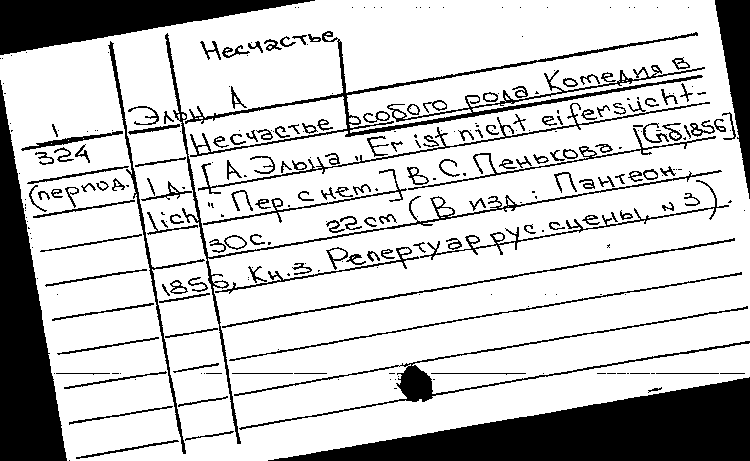 Несчастье
Эльц, А
1
324
(период.)
Несчастье особого рода. Комедия в
1 д. [А. Эльца „Er ist nicht eifersücht-
lich". Пер. с нем.] В.С. Пенькова. [Спб, 1856]
30с. 22cm (В изд: Пантеон,
1856, Кн.3. Репертуар рус. сцены, №3)